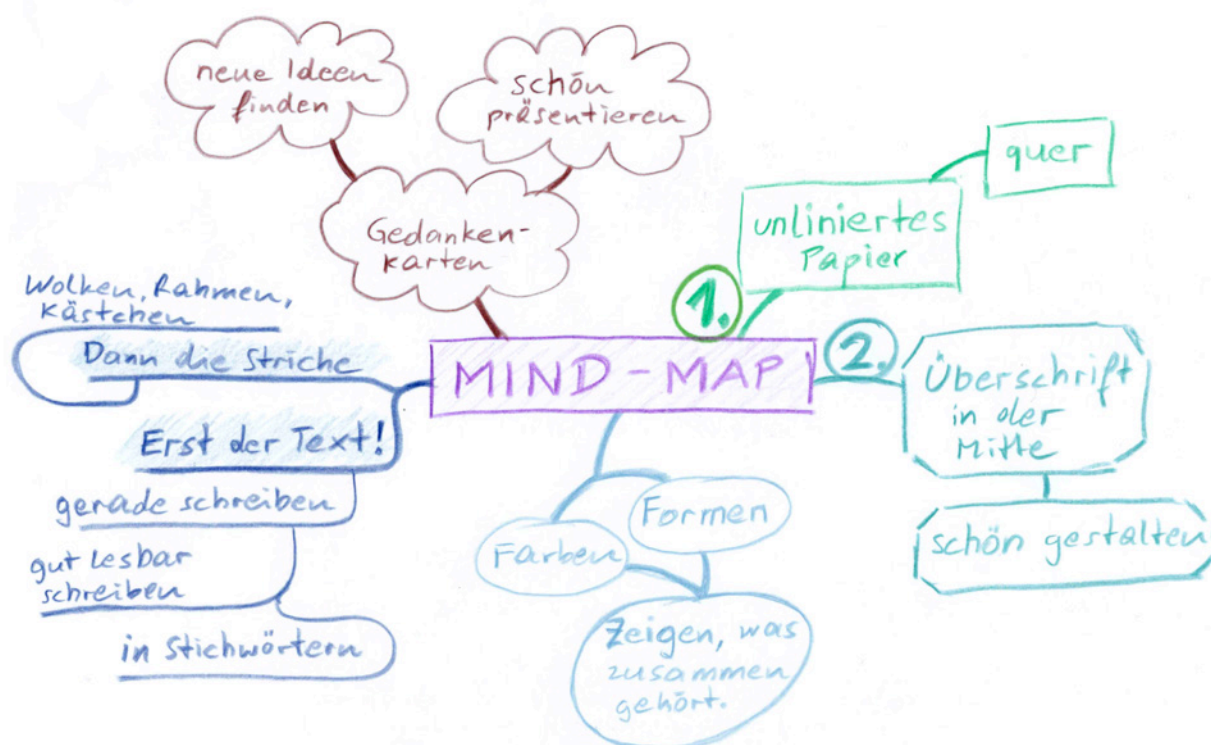 neue Ideen
finden
schön
präsentieren
Gedanken-
karten
quer
unliniertes
Papier
1.
MIND-MAP
2.
Überschrift
in der
Mitte
schön gestalten
Wolken, Rahmen,
Kästchen
Dann die Striche
Erst der Text!
gerade schreiben
gut lesbar
schreiben
in Stichwörtern
Formen
Farben
Zeigen, was
zusammen
gehört.